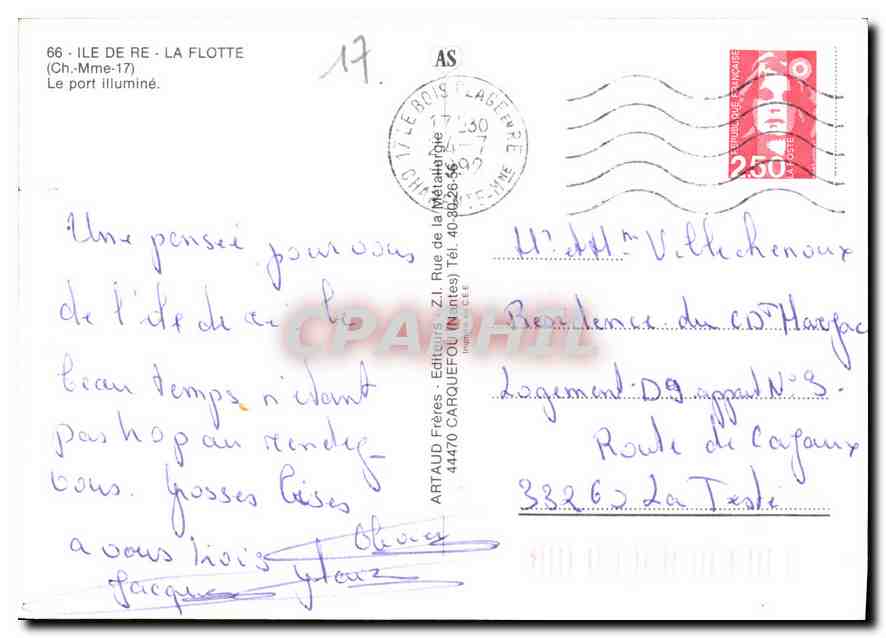 66 - ILE DE RE - LA FLOTTE
(Ch.-Mme-17)
Le port illuminé.
17.
AS
17 LE BOIS PLAGE EN RE
17 30
4-7
1992
CHARENTE-Mme
REPUBLIQUE FRANÇAISE
2,50
LA POSTE
Une pensée pour vous
de l'île de ré le
beau temps n'étant
pas trop au rendez-
vous. Grosses bises
a vous trois Olivier
Jacques
ARTAUD Frères - Editeurs - Z.I. Rue de la Métallurgie
44470 CARQUEFOU (Nantes) Tél. 40-30-26-56
Imprimé en C.E.E.
CPARPHIL
Mr et Mme Villechenoux
Residence du CDt Harjac
Logement D9 appart N° 3.
Route de Cazaux
33260 La Teste